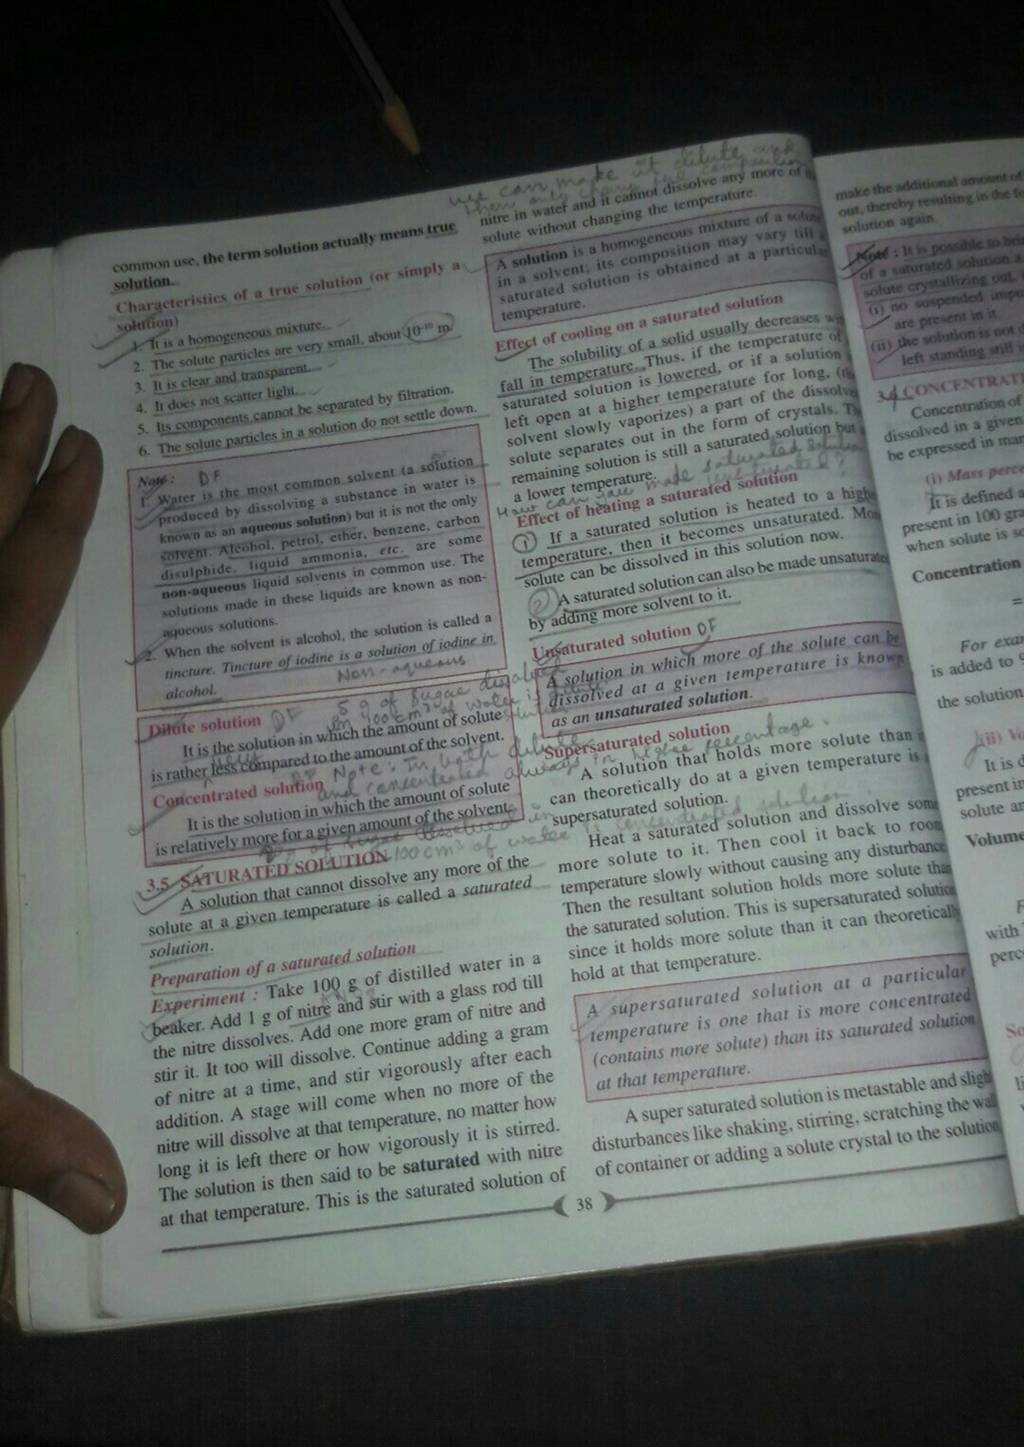 common use, the term solution actually means true
solution.
Characteristics of a true solution (or simply a
solution)
1. It is a homogeneous mixture.
2. The solute particles are very small, about 10⁻¹⁰ m.
3. It is clear and transparent.
4. It does not scatter light.
5. Its components cannot be separated by filtration.
6. The solute particles in a solution do not settle down.
Note : DF
1. Water is the most common solvent (a solution
produced by dissolving a substance in water is
known as an aqueous solution) but it is not the only
solvent. Alcohol, petrol, ether, benzene, carbon
disulphide, liquid ammonia, etc. are some
non-aqueous liquid solvents in common use. The
solutions made in these liquids are known as non-
aqueous solutions.
2. When the solvent is alcohol, the solution is called a
tincture. Tincture of iodine is a solution of iodine in
alcohol.
Non-aqueous
Dilute solution DF
5 g of sugar
It is the solution in which the amount of solute
is rather less compared to the amount of the solvent.
Note: In both dilute
Concentrated solution and concentrated always in higher percentage.
It is the solution in which the amount of solute
is relatively more for a given amount of the solvent.
of sugar dissolved in
100 cm³ of water is concentrated solution
3.5 SATURATED SOLUTION
A solution that cannot dissolve any more of the
solute at a given temperature is called a saturated
solution.
Preparation of a saturated solution
Experiment : Take 100 g of distilled water in a
beaker. Add 1 g of nitre and stir with a glass rod till
the nitre dissolves. Add one more gram of nitre and
stir it. It too will dissolve. Continue adding a gram
of nitre at a time, and stir vigorously after each
addition. A stage will come when no more of the
nitre will dissolve at that temperature, no matter how
long it is left there or how vigorously it is stirred.
The solution is then said to be saturated with nitre
at that temperature. This is the saturated solution of
we can make it dilute and
nitre in water and it cannot dissolve any more of
solute without changing the temperature.
A solution is a homogeneous mixture of a solute
in a solvent; its composition may vary till
saturated solution is obtained at a particular
temperature.
Effect of cooling on a saturated solution
The solubility of a solid usually decreases
fall in temperature. Thus, if the temperature of
saturated solution is lowered, or if a solution
left open at a higher temperature for long, (
solvent slowly vaporizes) a part of the dissolve
solute separates out in the form of crystals.
remaining solution is still a saturated solution but
a lower temperature.
How can you made saturated solution
unsaturated?
Effect of heating a saturated solution
1 If a saturated solution is heated to a high
temperature, then it becomes unsaturated. Mo
solute can be dissolved in this solution now.
2 A saturated solution can also be made unsaturate
by adding more solvent to it.
Unsaturated solution DF
A solution in which more of the solute can be
dissolved at a given temperature is known
as an unsaturated solution.
Supersaturated solution
A solution that holds more solute than
can theoretically do at a given temperature is
supersaturated solution.
Heat a saturated solution and dissolve som
more solute to it. Then cool it back to room
temperature slowly without causing any disturbance
Then the resultant solution holds more solute than
the saturated solution. This is supersaturated solution
since it holds more solute than it can theoretically
hold at that temperature.
A supersaturated solution at a particular
temperature is one that is more concentrated
(contains more solute) than its saturated solution
at that temperature.
A super saturated solution is metastable and sligh
disturbances like shaking, stirring, scratching the wa
of container or adding a solute crystal to the solution
38
make the additional amount of
out, thereby resulting in the fo
solution again.
Note : It is possible to
of a saturated solution a
solute crystallizing out,
(i) no suspended impu
are present in it.
(ii) the solution is not
left standing still
CONCENTRAT
Concentration of
dissolved in a given
be expressed in man
(i) Mass perce
It is defined a
present in 100 gra
when solute is so
Concentration
=
For exam
is added to
the solution
(ii) Vo
It is d
present in
solute an
Volume
F
with
perc
So